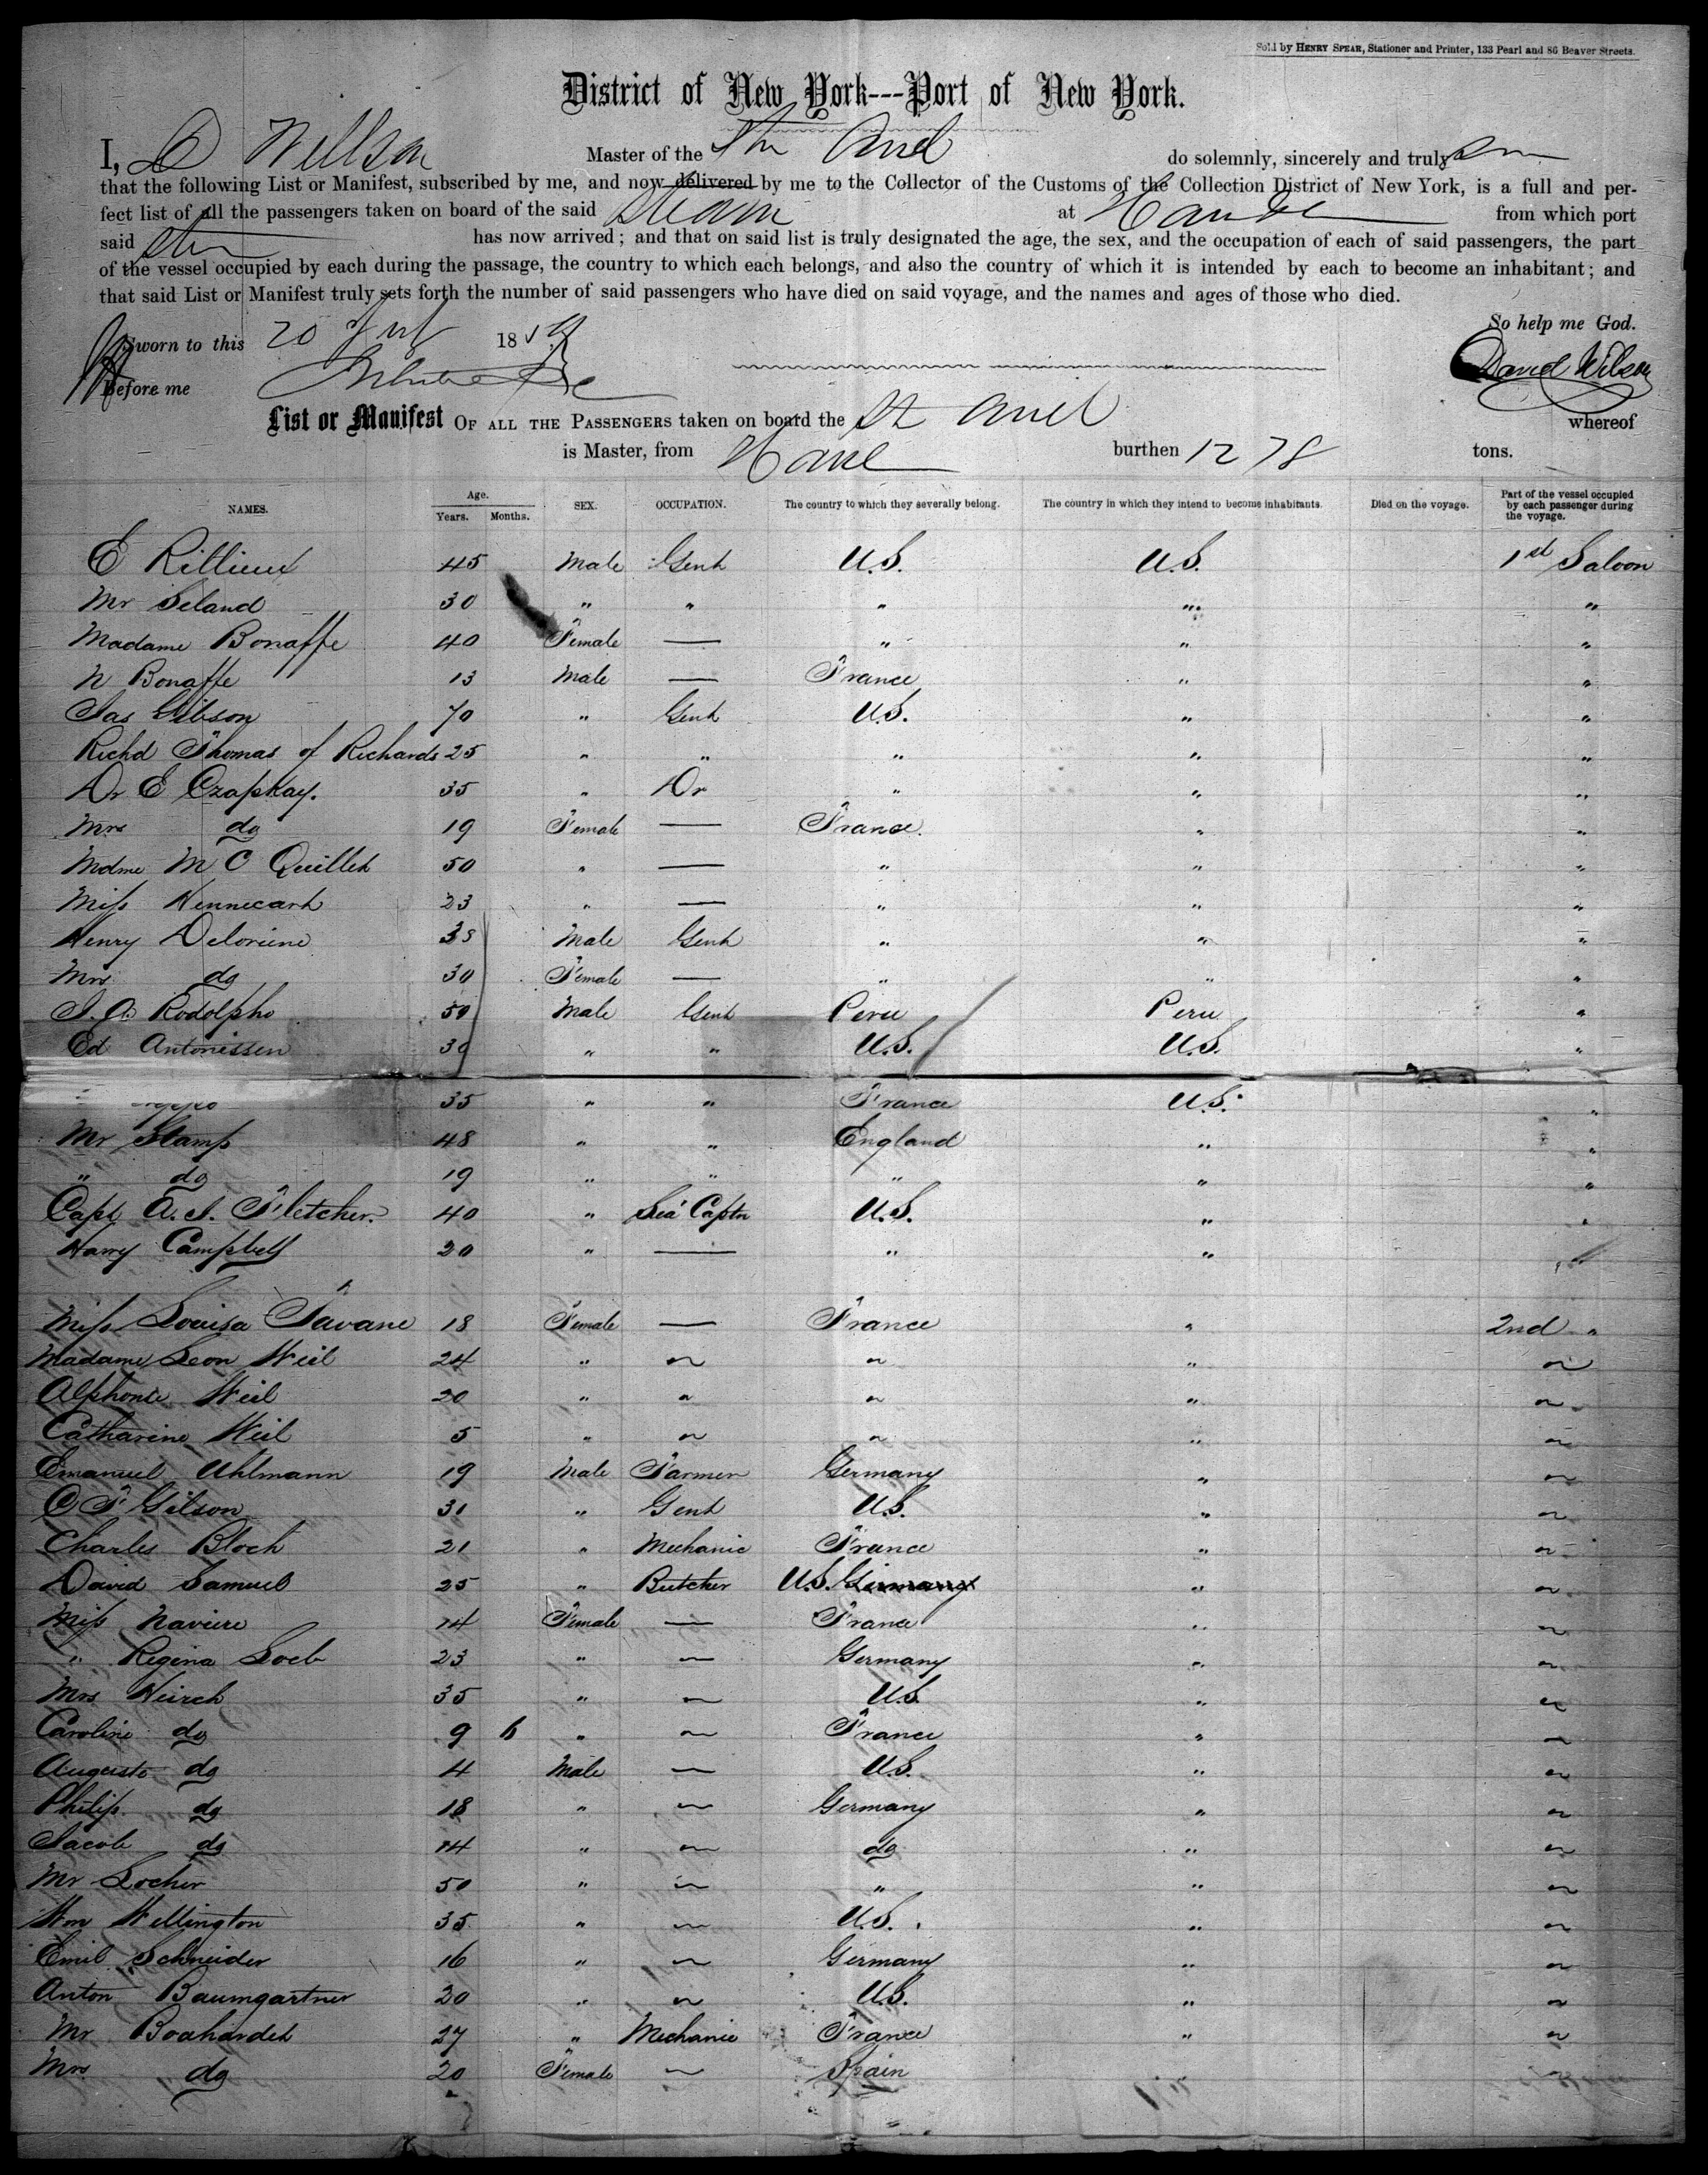 Sold by HENRY SPEAR, Stationer and Printer, 133 Pearl and 86 Beaver Streets.
District of New York---Port of New York.
I, D Willson Master of the Str Ariel do solemnly, sincerely and truly
that the following List or Manifest, subscribed by me, and now delivered by me to the Collector of the Customs of the Collection District of New York, is a full and per-
fect list of all the passengers taken on board of the said Steam at from which port
said Str has now arrived; and that on said list is truly designated the age, the sex, and the occupation of each of said passengers, the part
of the vessel occupied by each during the passage, the country to which each belongs, and also the country of which it is intended by each to become an inhabitant; and
that said List or Manifest truly sets forth the number of said passengers who have died on said voyage, and the names and ages of those who died.
So help me God.
Sworn to this 20 185
Before me
David Wilson
List or Manifest OF ALL THE PASSENGERS taken on board the St Ariel whereof
is Master, from Havre burthen 1278 tons.
NAMES. Age. Years. Months. SEX. OCCUPATION. The country to which they severally belong. The country in which they intend to become inhabitants. Died on the voyage. Part of the vessel occupied by each passenger during the voyage.
E Rillieux 45 Male Gent U.S. U.S. 1st Saloon
Mr Leland 30 " " " " "
Madame Bonaffe 40 Female — " " "
N Bonaffe 13 Male — France " "
Jas Gibson 70 " Gent U.S. " "
Richd Thomas of Richards 25 " " " " "
Dr E Czapkay. 35 " Dr " " "
Mrs do 19 Female — France " "
Mdme M C Quillet 50 " — " " "
Miss Hennecart 23 " — " " "
Henry Deloriene 38 Male Gent " " "
Mrs do 30 Female — " " "
J. A. Rodolpho 50 Male Gent Peru Peru "
Ed Antonissen 30 " " U.S. U.S. "
35 " " France U.S. "
Mr Stamp 48 " " England " "
" do 19 " " " " "
Capt A. J. Fletcher. 40 " Sea Captn U.S. " "
Harry Campbell 20 " — " "
Miss Louisa Tavane 18 Female — France " 2nd "
Madame Leon Weil 24 " " " " "
Alphonse Weil 20 " " " " "
Catharine Weil 5 " " " " "
Emanuel Uhlmann 19 Male Farmer Germany " "
C F Gilson 31 " Gent U.S. " "
Charles Bloch 21 " Mechanic France " "
David Samuel 25 " Butcher U.S. Germany " "
Miss Naviere 14 Female — France " "
" Regina Loeb 23 " — Germany " "
Mrs Heirch 35 " — U.S. " "
Caroline do 9 6 " — France " "
Auguste do 4 Male — U.S. " "
Philip do 18 " — Germany " "
Jacob do 14 " — do " "
Mr Locher 50 " — " " "
Wm Wellington 35 " — U.S. " "
Emil Schneider 16 " — Germany " "
Anton Baumgartner 20 " " U.S. " "
Mr Bouhardet 27 " Mechanic France " "
Mrs do 20 Female — Spain " "